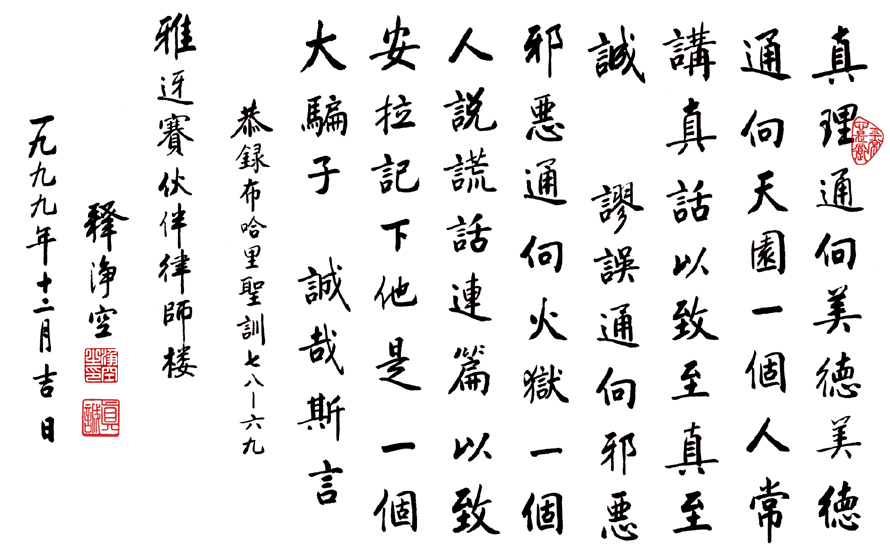 真理通向美德美德
通向天園一個人常
講真話以致至真至
誠 謬誤通向邪惡
邪惡通向火獄一個
人説謊話連篇以致
安拉記下他是一個
大騙子 誠哉斯言
恭録布哈里聖訓七八—六九
雅迓賽伙伴律師楼
釋淨空
一九九九年十二月吉日